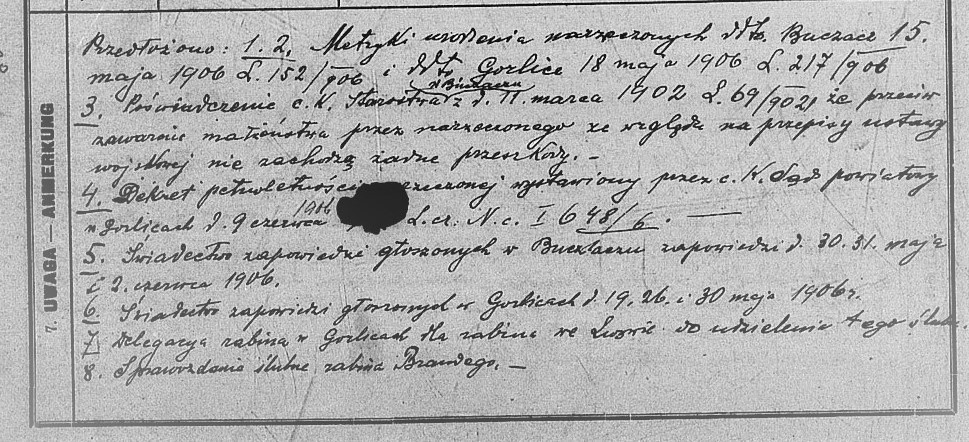 Przedłożono: 1. 2. Metryki urodzenia narzeczonych ddto. Buczacz 15.
maja 1906 L. 152/906 i ddto Gorlice 18 maja 1906 L. 217/906
w Buczaczu
3. Poświadczenie c. K. Starostwa z d. 11. marca 1902 L. 69/902, że przeciw
zawarciu małżeństwa przez narzeczonego ze względu na przepisy ustawy
wojskowej nie zachodzą żadne przeszkody. –
4. Dekret pełnoletności narzeczonej wystawiony przez c. K. Sąd powiatowy
w Gorlicach d. 9 czerwca 1906 L. cz. N. c. I 648/6. —
5. Świadectwo zapowiedzi głoszonych w Buczaczu zapowiedzi d. 30. 31. maja
i 2. czerwca 1906.
6. Świadectwo zapowiedzi głoszonych w Gorlicach d. 19. 26. i 30 maja 1906 r.
7. Delegacya rabina w Gorlicach dla rabina we Lwowie do udzielenia tego ślubu.
8. Sprawozdanie ślubne rabina Brandego. –
7. UWAGA — ANMERKUNG